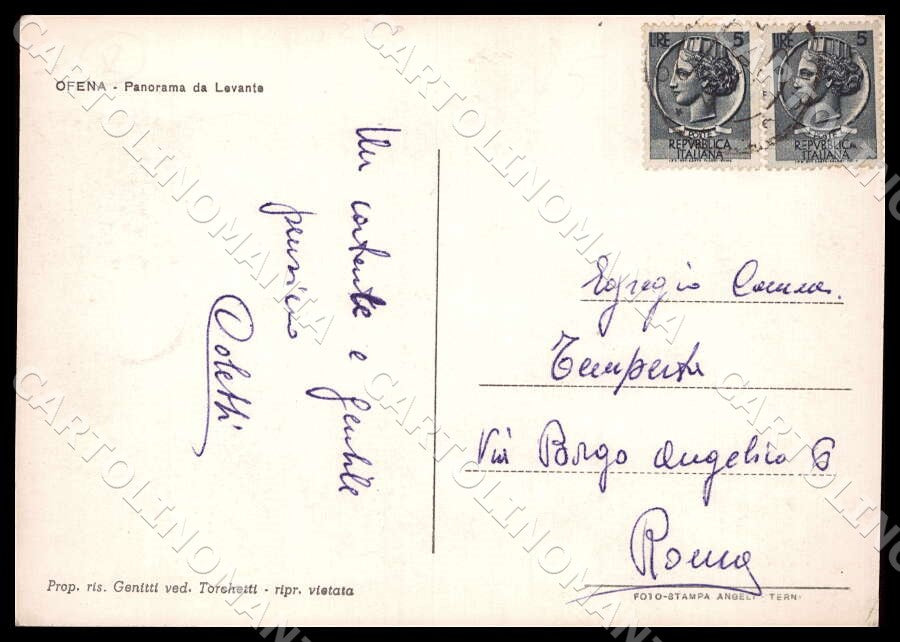 OFENA - Panorama da Levante
LIRE 5
POSTE
REPVBBLICA
ITALIANA
LIRE 5
POSTE
REPVBBLICA
ITALIANA
Un cortente e gentile
pensiero
Egregio Comm.
Tempesta
Via Borgo Angelico 6
Roma
Prop. ris. Genitti ved. Torchetti - ripr. vietata
FOTO-STAMPA ANGELI - TERNI
CARTOLINOMANIA